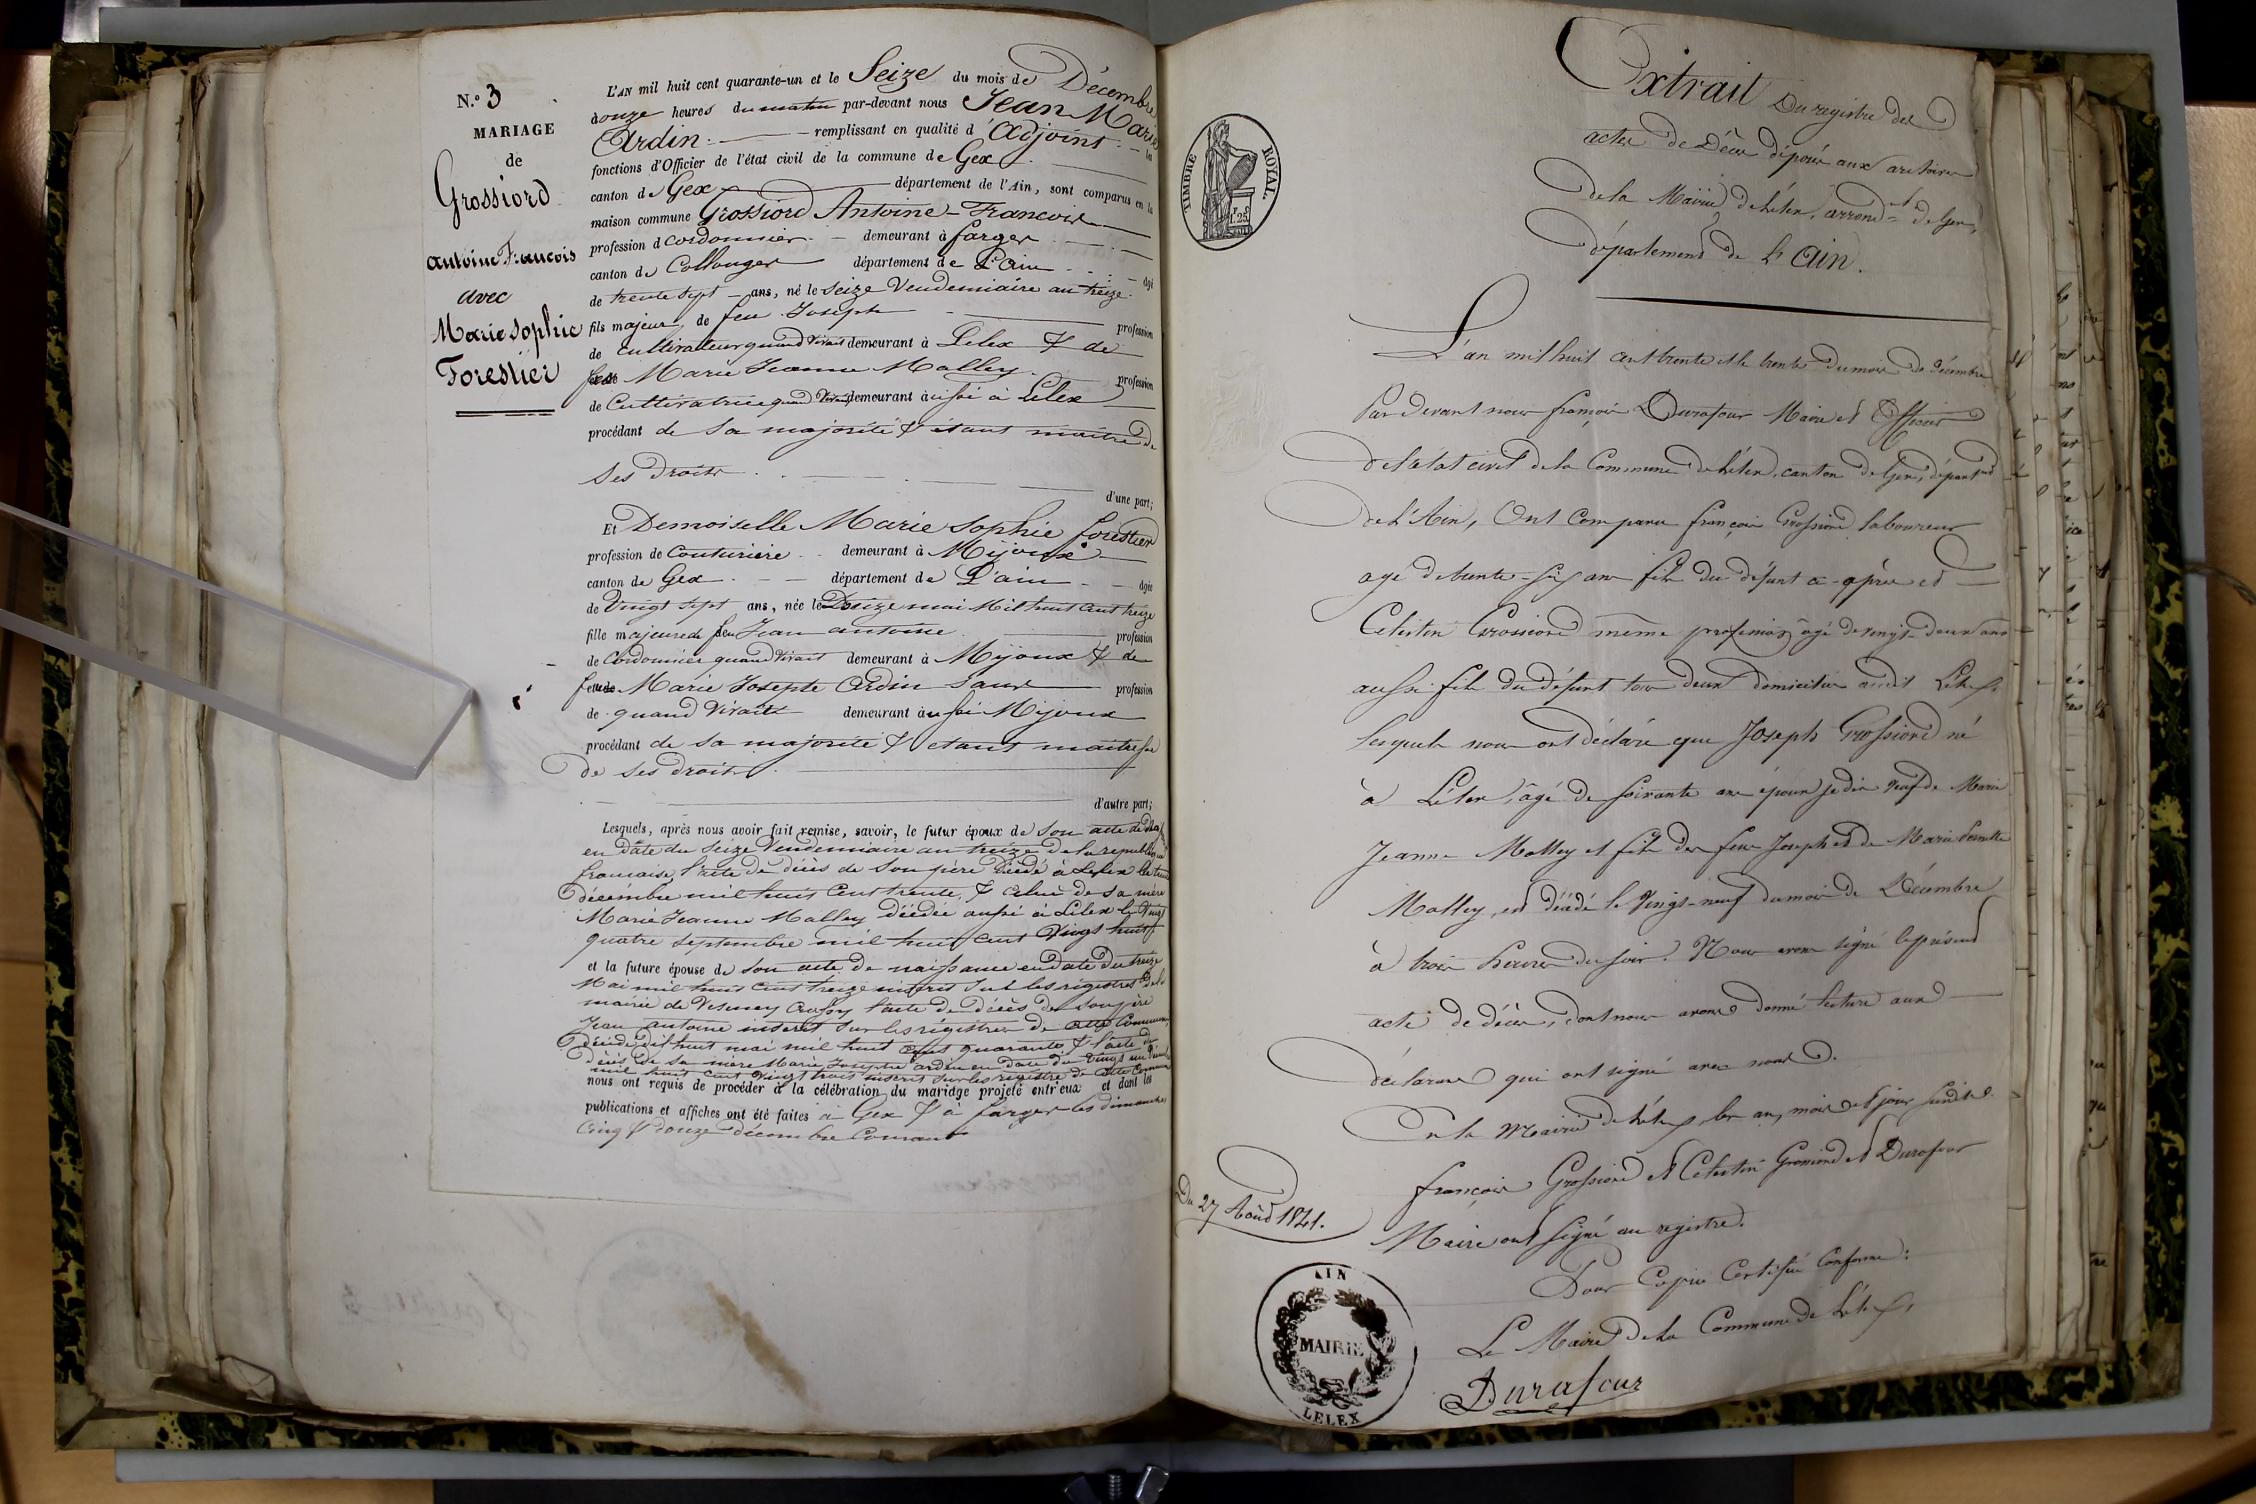 N.º 3
MARIAGE
de
Grossiord
antoine François
avec
Marie Sophie
Forestier
L'AN mil huit cent quarante-un et le Seize du mois de Décembre
à onze heures du matin par-devant nous Jean Marie
Ardin remplissant en qualité d'Adjoint les
fonctions d'Officier de l'état civil de la commune de Gex
canton de Gex département de l'Ain, sont comparus en la
maison commune Grossiord Antoine-François
profession de cordonnier demeurant à farges
canton de Collonges département de L'Ain âgé
de trente sept ans, né le seize Vendemiaire an treize
fils majeur de feu Joseph profession
de cultivateur quand vivait demeurant à Lelex & de
feue Marie Jeanne Malley profession
de Cultivatrice quand vivait demeurant aussi à Lelex
procédant de sa majorité & étant maître de
ses droits
d'une part;
Et Demoiselle Marie Sophie forestier
profession de Couturière demeurant à Mijoux
canton de Gex département de L'ain âgée
de Vingt sept ans, née le Douze mai Mil huit cent treize
fille majeure de feu Jean antoine profession
de Cordonnier quand vivait demeurant à Mijoux & de
feue Marie Josephe Ardin sans profession
de quand vivait demeurant aussi Mijoux
procédant de sa majorité & étant maitresse
de ses droits
d'autre part;
Lesquels, après nous avoir fait remise, savoir, le futur époux de son acte de
en date du seize Vendemiaire an treize de la republique
francaise, l'acte de décès de son père décédé à Lelex le trente
décembre mil huit cent trente, & celui de sa mère
Marie Jeanne Malley décédée aussi à Lelex le Vingt
quatre septembre mil huit cent Vingt huit
et la future épouse de son acte de naissance en date du treize
Mai mil huit cent treize inscrit sur les régistres de la
mairie de Vesancy Crassy l'acte de décès de son père
Jean antoine inscrit sur les régistres de cette Commune
décédé dix huit mai mil huit cent quarante & l'acte de
décès de sa mère Marie Josephe ardin en date du Vingt un
mil huit cent vingt trois inscrit sur les registre de cette Commune
nous ont requis de procéder à la célébration du mariage projeté entr'eux et dont les
publications et affiches ont été faites à Gex & à farges les dimanches
Cinq & douze décembre Courant
TIMBRE ROYAL.
Extrait Du registre des
actes de Décès déposés aux archives
de la Mairie de Lélex, arrond.t de Gex,
département de l'Ain.
L'an mil huit cent trente et le trente du mois de décembre
Par devant nous françois Durafour Maire et Officier
de l'état civil de la Commune de Lélex, canton de Gex, départ.t
de l'Ain, Ont comparu françois Grossiord laboureur
agé de trente-six ans fils du défunt ci-après et
Celestin Grossiord même profession âgé de vingt-deux ans
aussi fils du défunt tous deux domiciliés audit Lélex,
Lesquels nous ont déclaré que Joseph Grossiord né
à Lélex, âgé de soixante ans époux veuf de Marie
Jeanne Malley et fils des feus Joseph et de Marie Pernette
Malley, est décédé le Vingt-neuf du mois de Décembre
à trois heures du soir. Nous avons signé le présent
acte de décès, dont nous avons donné lecture aux
déclarans qui ont signé avec nous.
En la Mairie de Lélex, les an, mois et jour susdits.
françois Grossiord et Celestin Grossiord et Durafour
Maire ont signé au registre.
Du 27 Août 1841.
Pour Copie Certifiée Conforme:
Le Maire de la Commune de Lélex,
Durafour
AIN
MAIRIE
LELEX